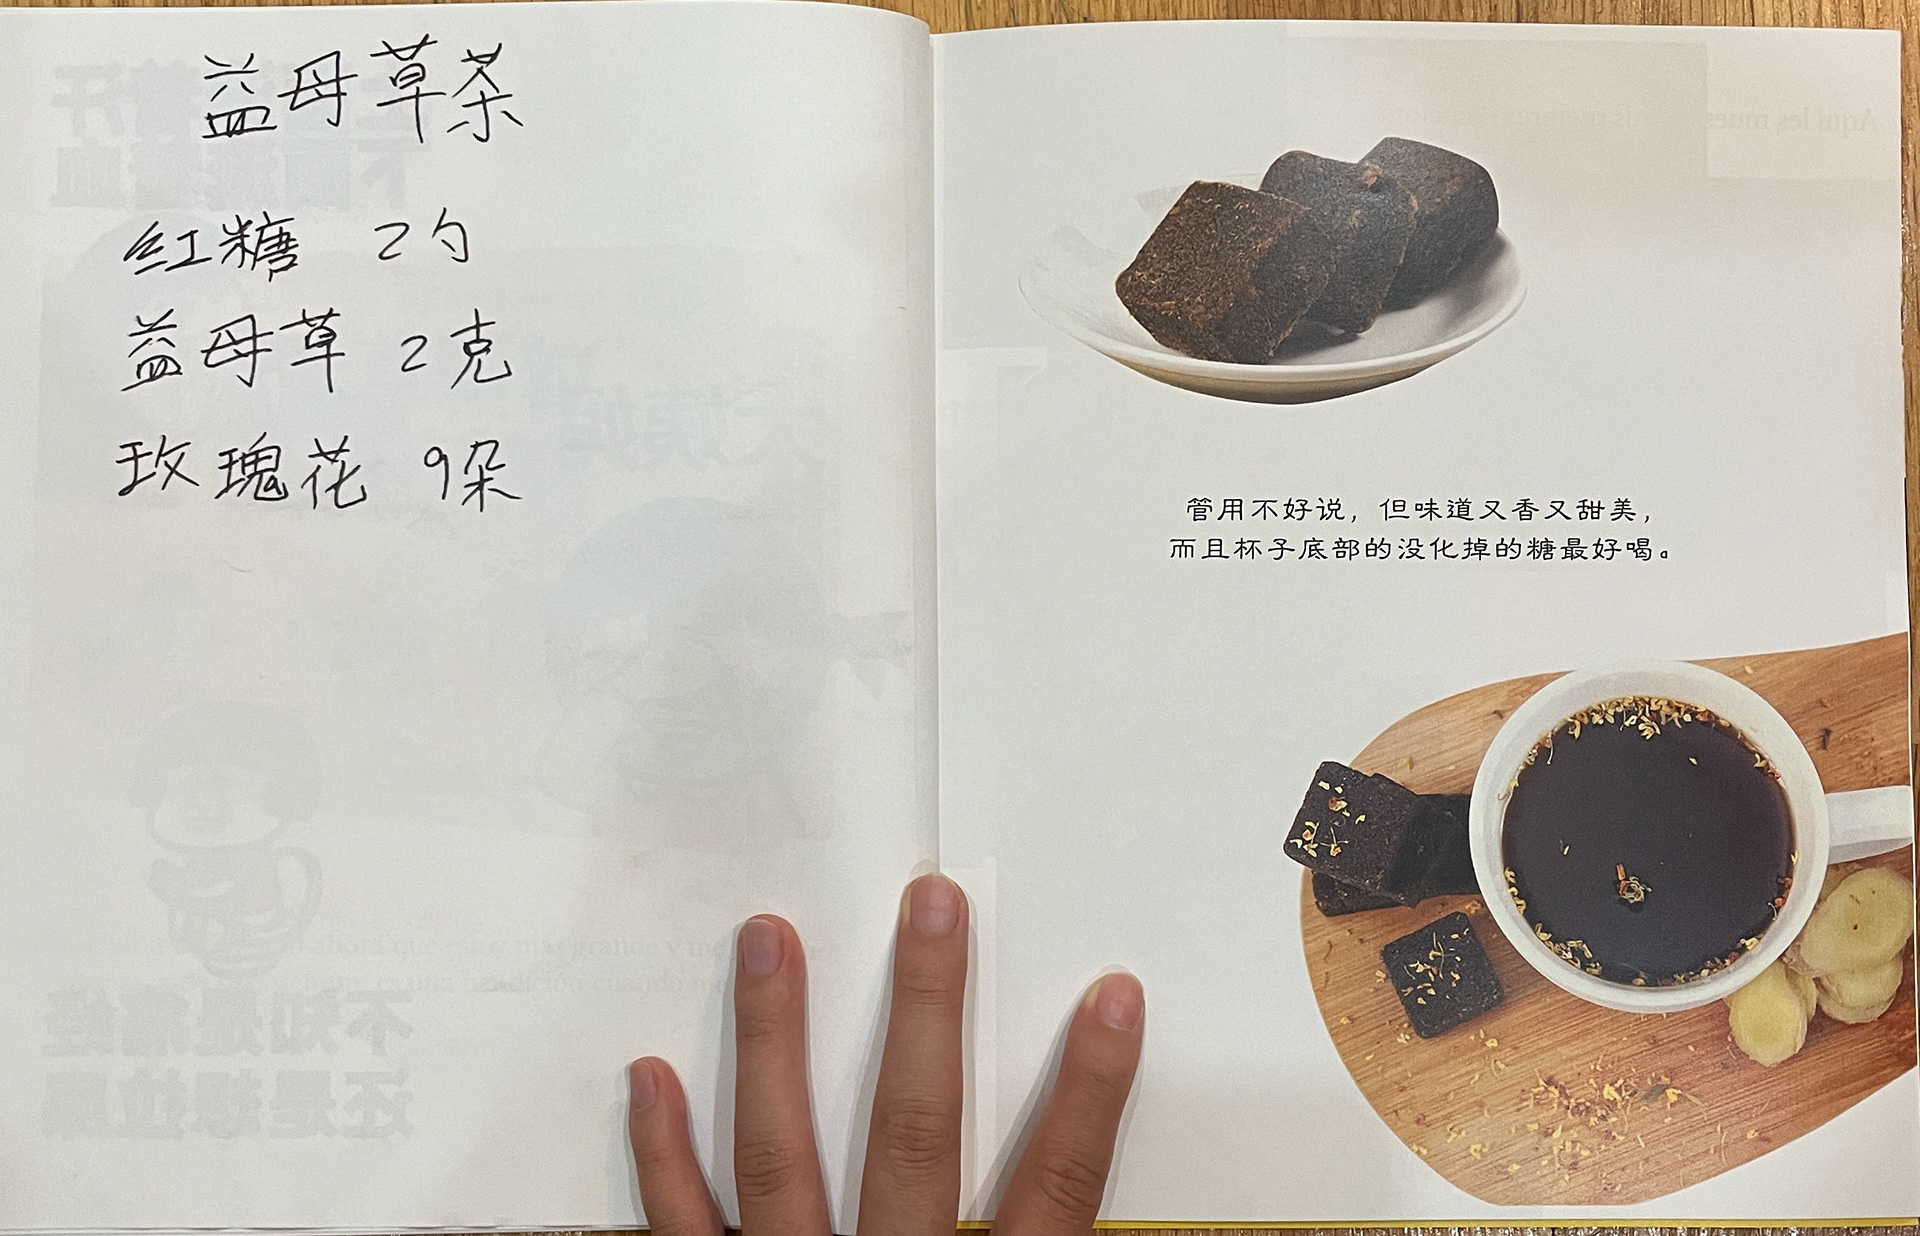 益母草茶
红糖 2勺
益母草 2克
玫瑰花 9朵
管用不好说，但味道又香又甜美，
而且杯子底部的没化掉的糖最好喝。